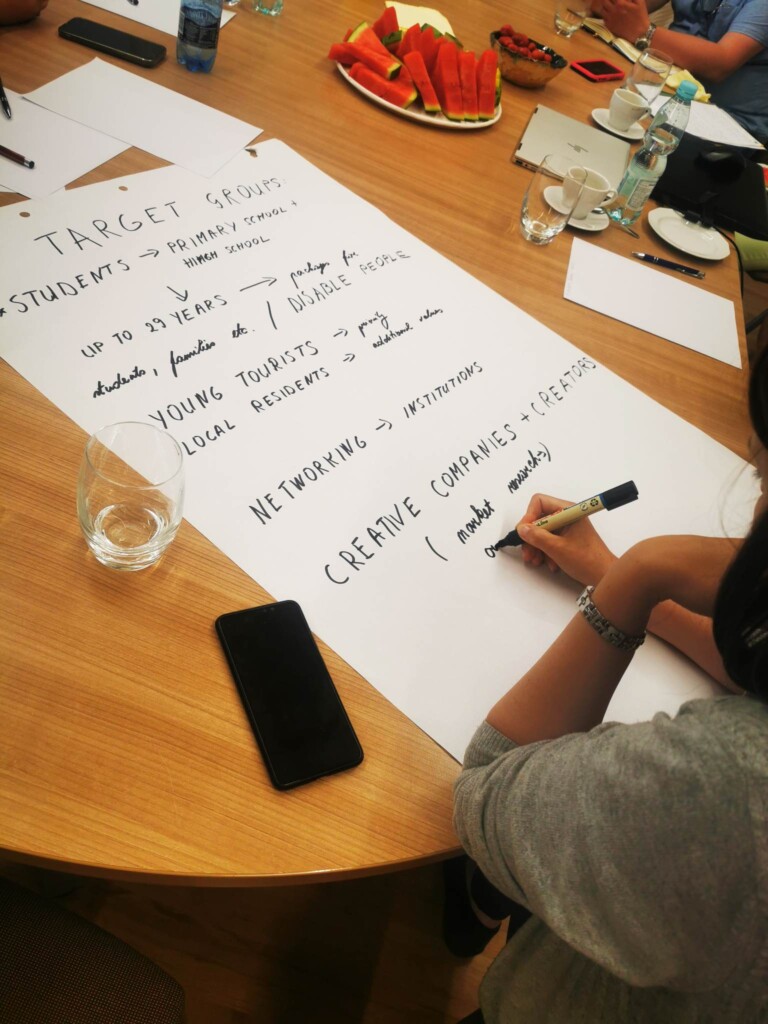 TARGET GROUPS
* STUDENTS → PRIMARY SCHOOL +
HIGH SCHOOL
↓
UP TO 29 YEARS → package for
students, families etc. / DISABLE PEOPLE
YOUNG TOURISTS →
LOCAL RESIDENTS → additional values
NETWORKING → INSTITUTIONS
CREATIVE COMPANIES + CREATORS
( market research)